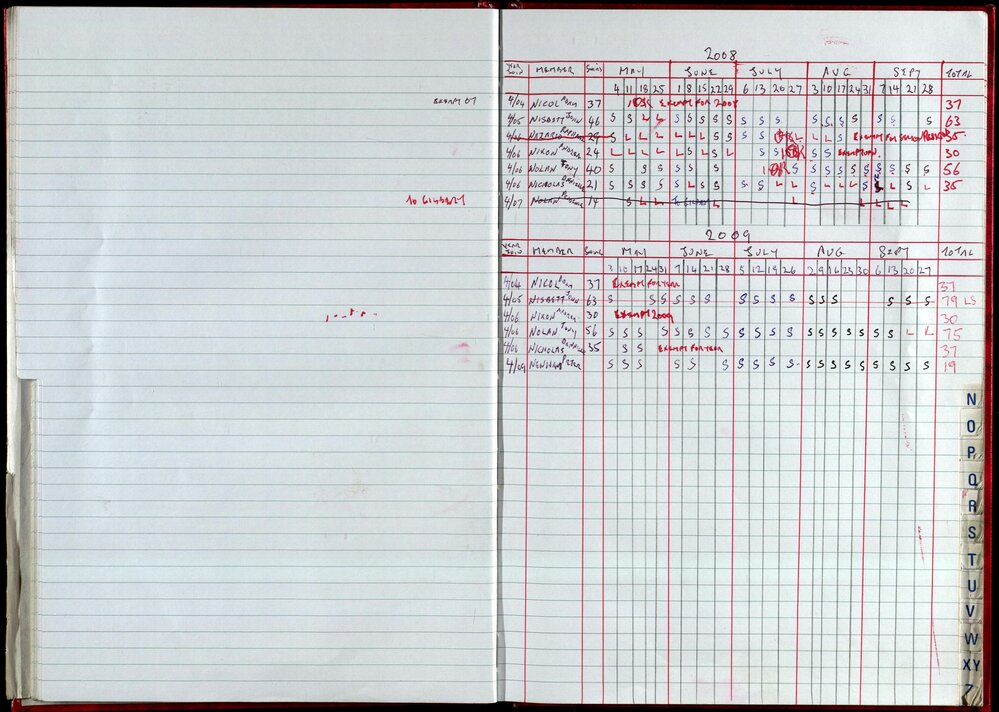 2008
YEAR JOIN MEMBER SWIMS MAY JUNE JULY AUG SEPT TOTAL
4 11 18 25 1 8 15 22 29 6 13 20 27 3 10 17 24 31 7 14 21 28
EXEMPT 07 4/04 NICOL 37 EXEMPT FOR 2008 37
4/05 NISBETT JOHN 46 S S L L S S S S S S S S S S S S S S S S 63
4/06 NAZARIO 29 S L L L L L L S S S S L L EXEMPT FOR 35
4/06 NIXON 24 L L L L L S L S L S S S EXEMPTION. 30
4/06 NOLAN TONY 40 S S S S S S S S S S S S S S S S S S 56
4/06 NICHOLAS 21 S S S S S L S S S S L L S L L L S L L S L 35
10 GIGGREY 4/07 NOLAN 14 S L L S L L L L L L
2009
YEAR JOIN MEMBER SWIMS MAY JUNE JULY AUG SEPT TOTAL
3 10 17 24 31 7 14 21 28 5 12 19 26 2 9 16 23 30 6 13 20 27
4/04 NICOL 37 EXEMPT FOR YEAR 37
4/05 NISBETT JOHN 63 S S S S S S S S S S S S S S S S 79 LS
4/06 NIXON 30 EXEMPT 2009 30
4/06 NOLAN TONY 56 S S S S S S S S S S S S S S S S S S S L L 75
4/06 NICHOLAS 35 S S EXEMPT FOR YEAR 37
4/09 NEWMAN PETER S S S S S S S S S S S S S S S S S S S 19
N
O
P
Q
R
S
T
U
V
W
XY
Z